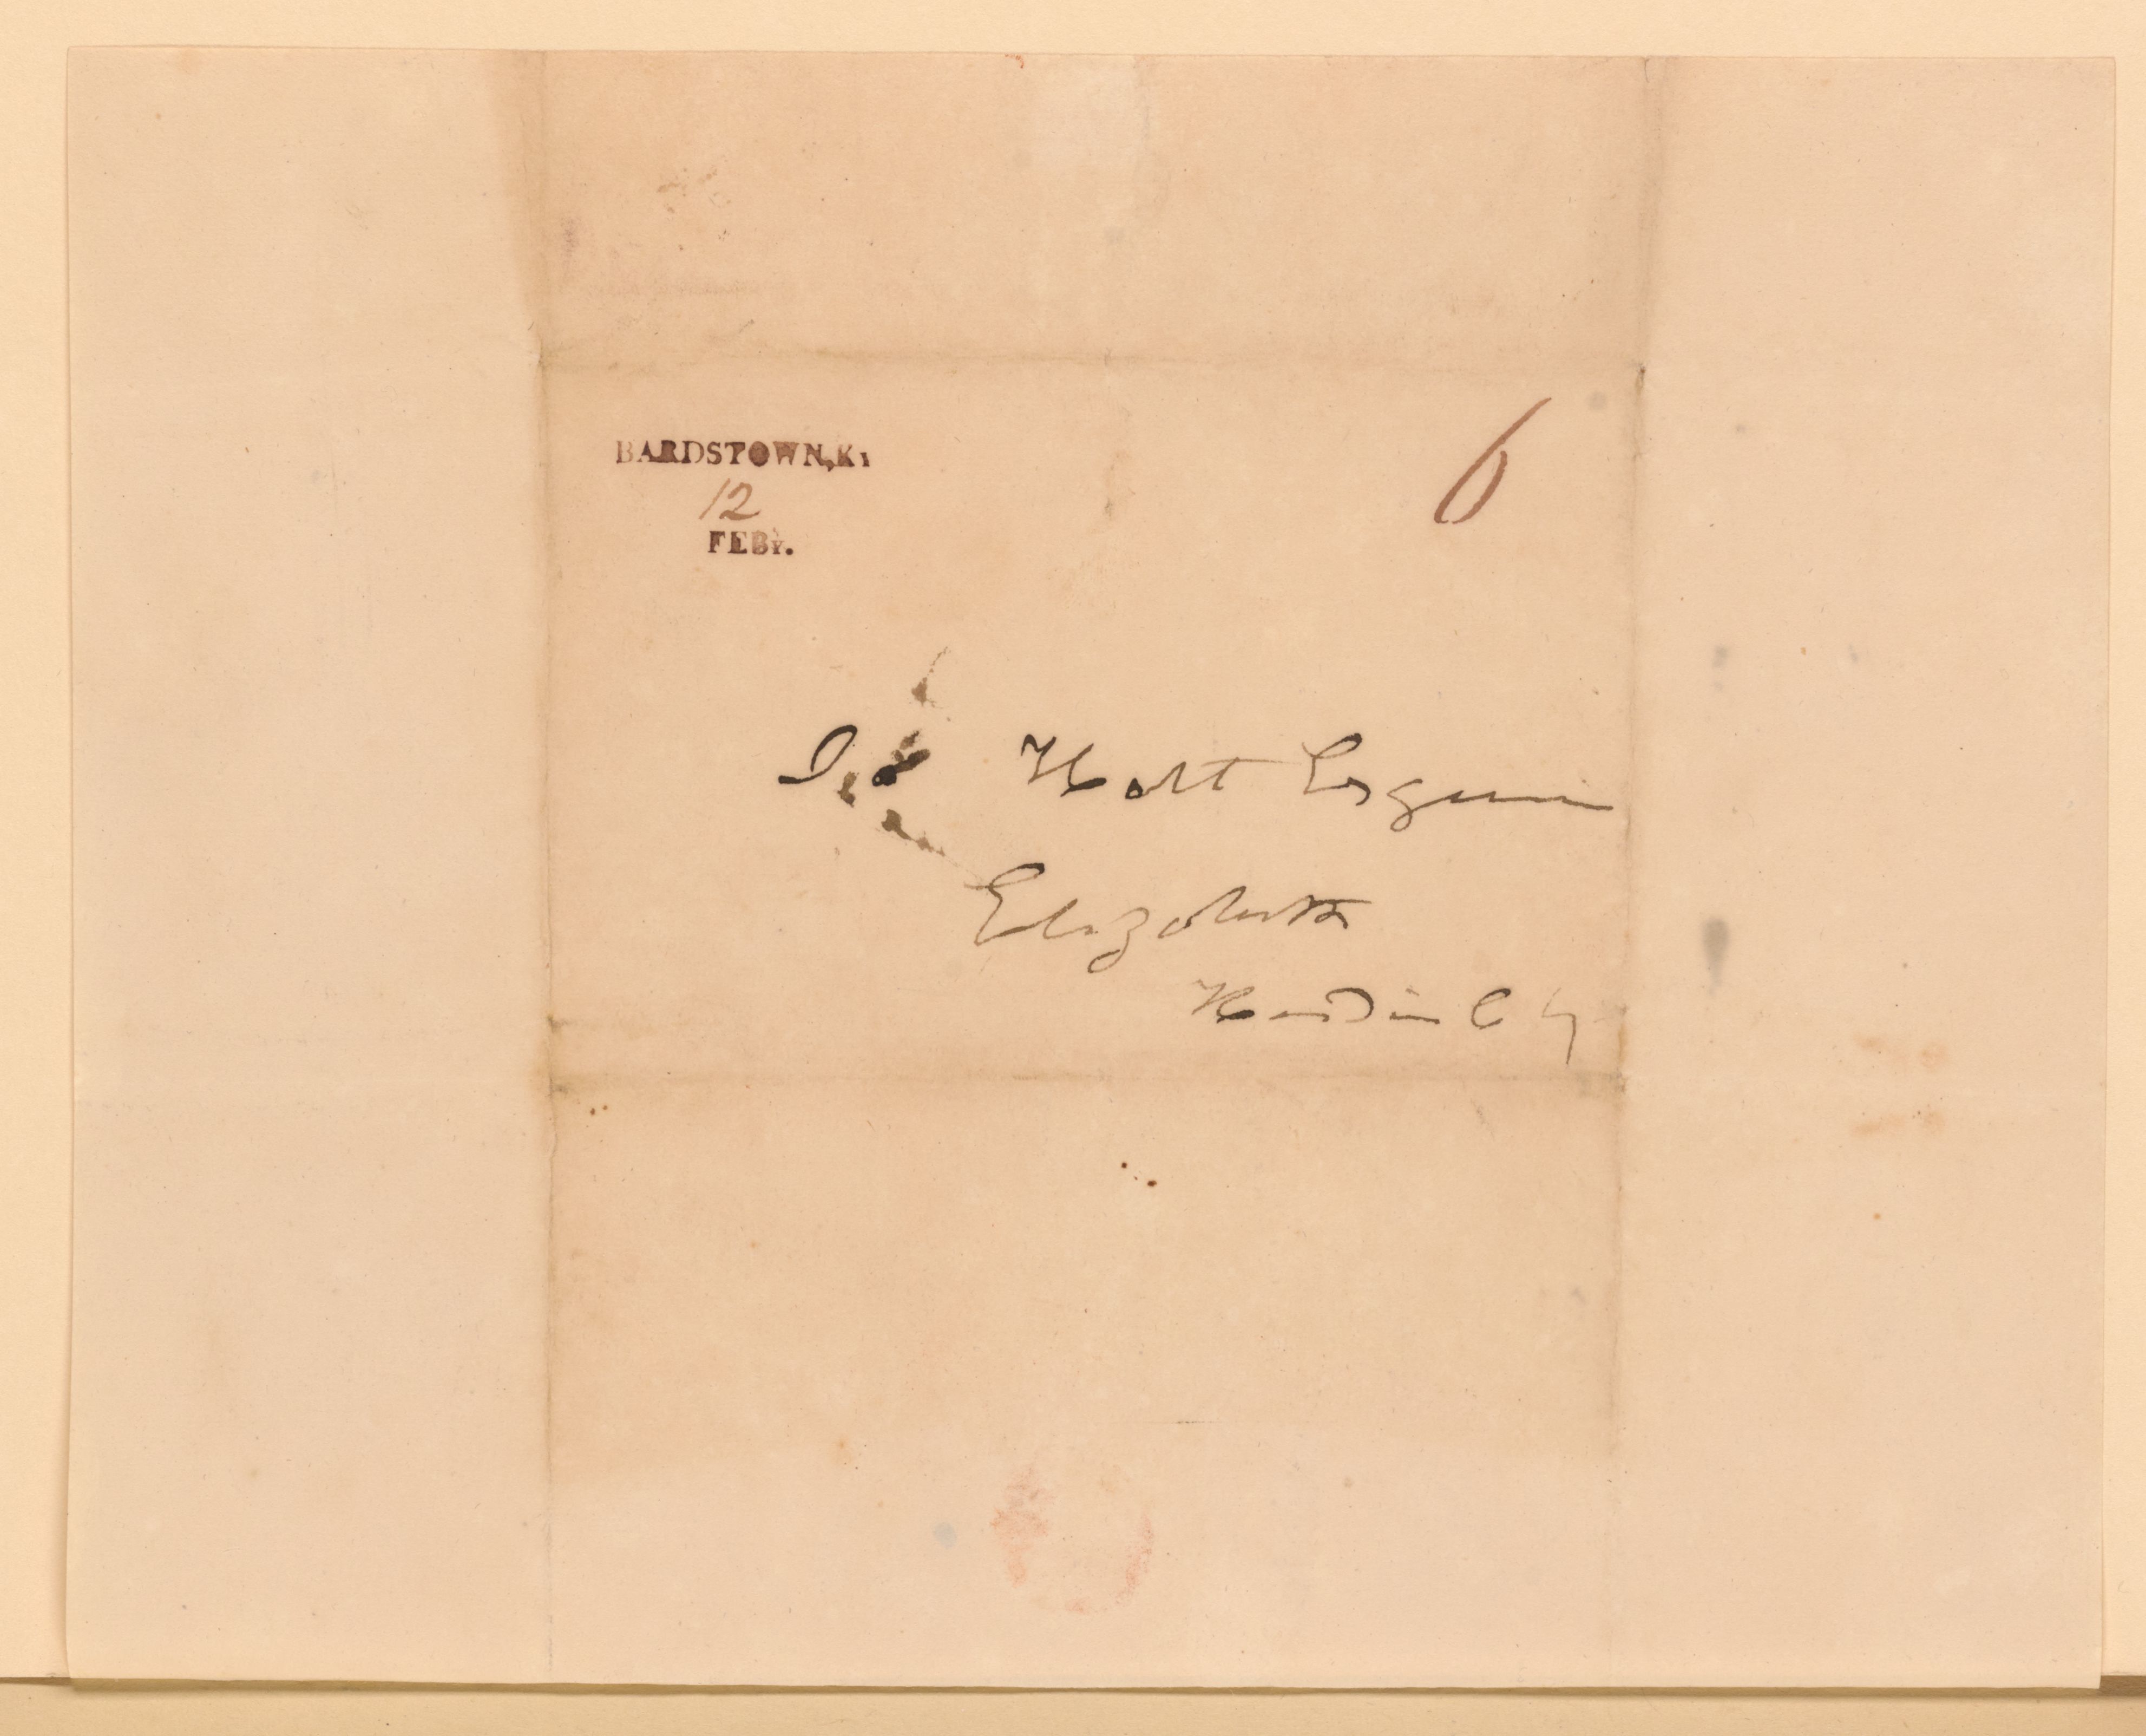 BARDSTOWN, Ky
6
12
FEBy.
Holt Esquire
Elizabeth
Hardin Cty